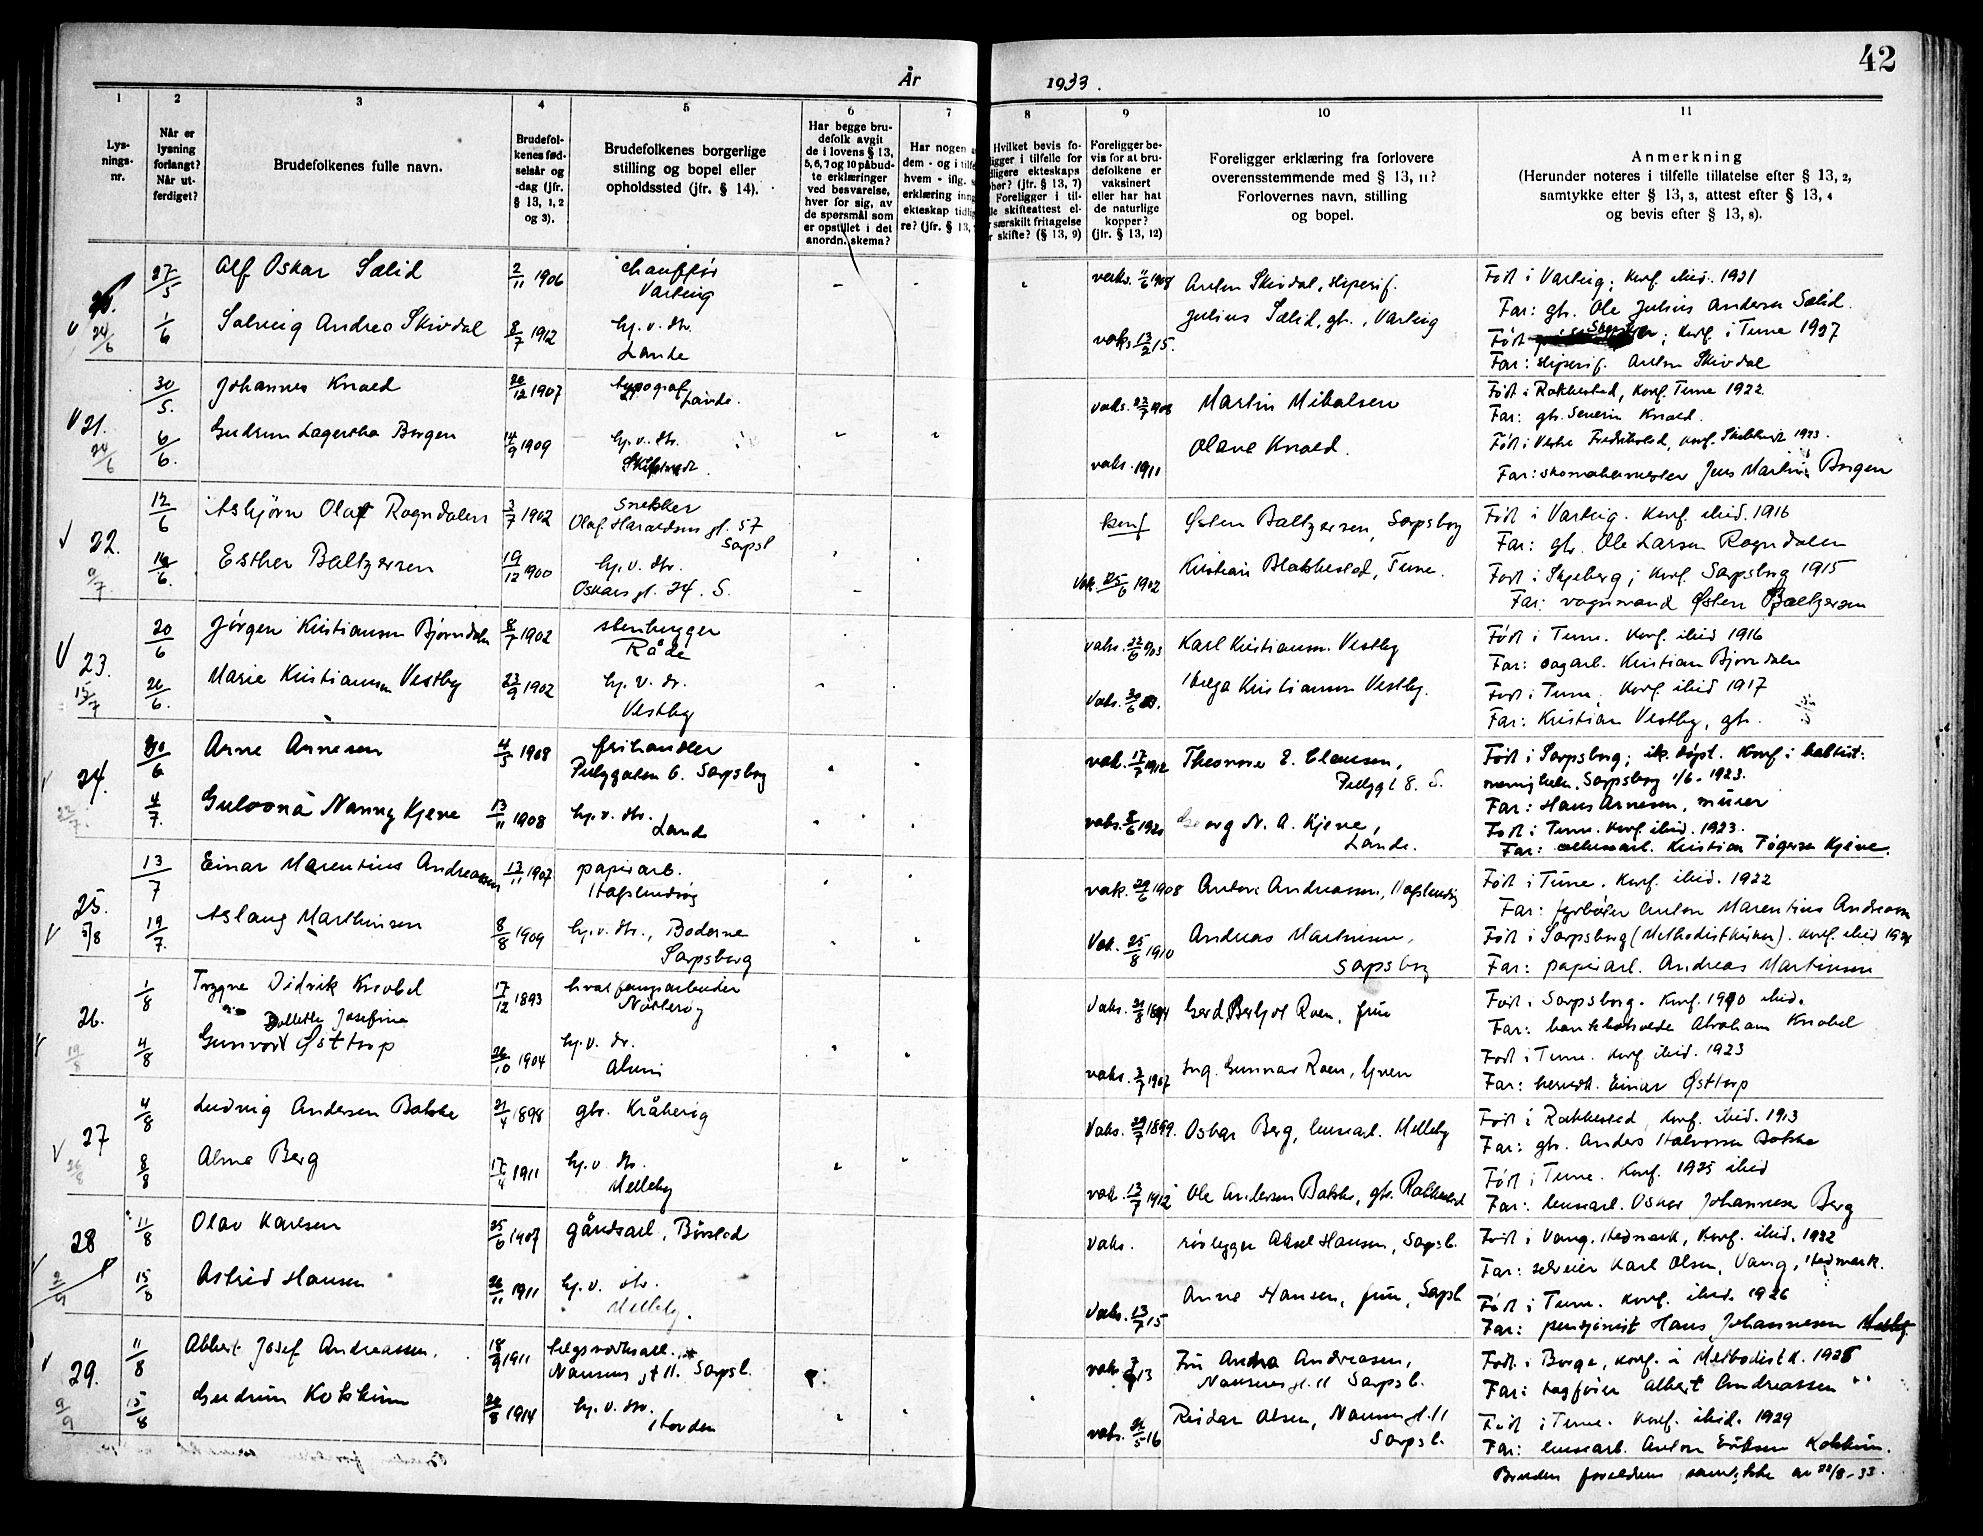 42
År 1933.
1 2 3 4 5 6 7 8 9 10 11
Lys-
nings-
nr.
Når er
lysning
forlangt?
Når ut-
ferdiget?
Brudefolkenes fulle navn.
Brudefol-
kenes fød-
selsår og
-dag (jfr.
§ 13, 1, 2
og 3).
Brudefolkenes borgerlige
stilling og bopel eller
opholdssted (jfr. § 14).
Har begge bru-
defolk avgit
de i lovens § 13,
5, 6, 7 og 10 påbud-
te erklæringer
ved besvarelse,
hver for sig, av
de spørsmål som
er opstillet i det
anordn. skema?
Har nogen
dem - og i tilf
hvem - iflg.
erklæring inng
ekteskap tidlig
re? (jfr. § 13,
Hvilket bevis fo-
ligger i tilfelle for
dligere ekteskaps
ber? (jfr. § 13, 7)
Foreligger i til-
lle skifteattest el-
særskilt fritagelse
r skifte? (§ 13, 9)
Foreligger be-
vis for at bru-
defolkene er
vaksinert
eller har hat
de naturlige
kopper?
(jfr. § 13, 12)
Foreligger erklæring fra forlovere
overensstemmende med § 13, 11?
Forlovernes navn, stilling
og bopel.
Anmerkning
(Herunder noteres i tilfelle tillatelse efter § 13, 2,
samtykke efter § 13, 3, attest efter § 13, 4
og bevis efter § 13, 8).
27/5 Alf Oskar Sælid 2/11 1906 chauffør
Varteig
vaks. 11/6 1908 Anton Skivdal, sliperif. Født i Varteig; konf. ibid. 1921
Far: gbr. Ole Julius Andersen Sælid.
24/6 1/6 Solveig Andrea Skivdal 8/7 1912 hj. v. str.
Lande
vaks 13/2 15. Julius Sælid, gbr., Varteig Født; konf. i Tune 1927
Far: sliperif. Anton Skivdal
21. 30/5. Johannes Knold 20/12 1907 typograf
Lande.
vaks. 1908 Martin Mikalsen Født i Rakkestad, konf. Tune 1922
Far: gbr. Severin Knold.
24/6 6/6. Gudrun Lagertha Borgen 14/9 1909 hj. v. str.
vaks. 1911 Olave Knold. Født i Fredrikstad, konf. 1923.
Far: skomakermester Jens Martin Borgen
22. 12/6 Asbjørn Olaf Rogndalen 3/7 1902 snekker
Olaf Haraldsens gt. 57
Sarpsb
Østen Baltzersen, Sarpsborg Født i Varteig. Konf. ibid. 1916
Far: gbr. Ole Larsen Rogndalen
16/6. Esther Baltzersen 19/12 1900 hj. v. str.
Oskars gt. 24. S.
Vak. 25/6 1902 Kristian Blakkestad, Tune. Født i Skjeberg; konf. Sarpsborg 1915
Far: vognmand Østen Baltzersen
23. 20/6 Jørgen Kristiansen Bjørndalen 8/7 1902 stenhugger
Råde
vaks. 22/6 03 Karl Kristiansen Vestby Født i Tune. Konf. ibid 1916
Far: sagarb. Kristian Bjørndalen
15/7 26/6. Marie Kristiansen Vestby 23/9 1902 hj. v. str.
Vestby
Vaks. 30/6 03. Helga Kristiansen Vestby. Født i Tune. Konf. ibid 1917
Far: Kristian Vestby, gbr.
24. 30/6 Arne Arnesen 4/5 1908 frihandler
Pellygaten 6. Sarpsborg
vak. 17/7 1912 Theonora E. Clausen,
Pellygt 8. S.
Født i Sarpsborg; ik. døpt. Konf. i baptist-
menigheten, Sarpsborg 1/6-1923.
Far: Hans Arnesen, murer
22/7. 4/7. Gulovnå Nanny Kjene 13/11 1908 hj. v. str.
Lande
vaks. 8/6 1920 Georg N. A. Kjene,
Lande.
Født i Tune. Konf. ibid. 1923.
Far: cellulosearb. Kristian Tøgersen Kjene.
25. 13/7 Einar Marentius Andreassen 13/11 1907 papirarb.
Hafslundsøy
vak. 29/6 1908 Anton Andreassen, Hafslundsøy Født i Tune. Konf. ibid. 1922
Far: fyrbøter Anton Marentius Andreassen
5/8 19/7. Aslaug Marthinsen 8/8 1909 hj. v. str., Boderne
Sarpsborg
Vak. 25/8 1910 Andreas Martinsen,
Sarpsborg
Født i Sarpsborg (Methodistkirken). Konf. ibid 1924
Far: papirarb. Andreas Martinsen
26. 1/8 Trygve Didrik Knobel 17/12 1893 hvalfangstarbeider
Nøtterøy
Vaks. 21/8 1894 Gerd Berljot Roen, frue Født i Sarpsborg. Konf. 1910 ibid.
Far: bankbokholder Abraham Knobel
19/8 4/8 Bollette Josefine
Gunvor Østtorp 26/10 1904 hj. v. str.
Alvim
vaks. 3/7 1907 Ing. Gunnar Roen, Greåker Født i Tune. Konf ibid. 1923
Far: Einar Østtorp
27 4/8 Ludvig Andersen Bakke 21/4 1898 gbr. Kråkerig
Vaks. 29/7 1899. Oskar Berg, bruksarb. Melleby Født i Rakkestad, konf. ibid. 1913
Far: gbr. Anders Halvorsen Bakke
26/8 8/8 Alma Berg 17/4 1911 hj. v. str.
Melleby
vak. 13/7 1912 Ole Andersen Bakke, gbr. Rakkestad Født i Tune. Konf. 1925 ibid
Far: bruksarb. Oskar Johannesen Berg
28 11/8 Olav Karlsen 25/6 1907 gårdsarb., Børstad
vaks. rørlegger Aksel Hansen, Sarpsb. Født i Vang, Hedmark, konf. ibid. 1922
Far: selveier Karl Olsen, Vang, Hedmark.
2/9 15/8 Astrid Hansen 26/11 1911 hj. v. str.
Melleby.
Vaks. 13/7 15 Anna Hansen, frue, Sarpsb Født i Tune. Konf. ibid. 1926
Far: pensjonist Hans Johannesen Melleby
29. 11/8 Albert Josef Andreassen. 18/9 1911
Nansens gt 11. Sarpsb.
vaks 13 Fru Andrea Andreassen,
Nansens gt. 11 Sarpsb.
Født i Borge, konf. i Methodistk. 1926
Far: togfører Albert Andreassen
9/9 15/8 Gudrun Kokkim 26/8 1914 hj. v. str.
Hovden
vaks. 21/5 16 Reidar Olsen, Nansens gt. 11
Sarpsb.
Født i Tune. Konf. ibid. 1929
Far: bruksarb. Anton Eriksen Kokkim.
Brudens foreldres samtykke av 22/8-33.